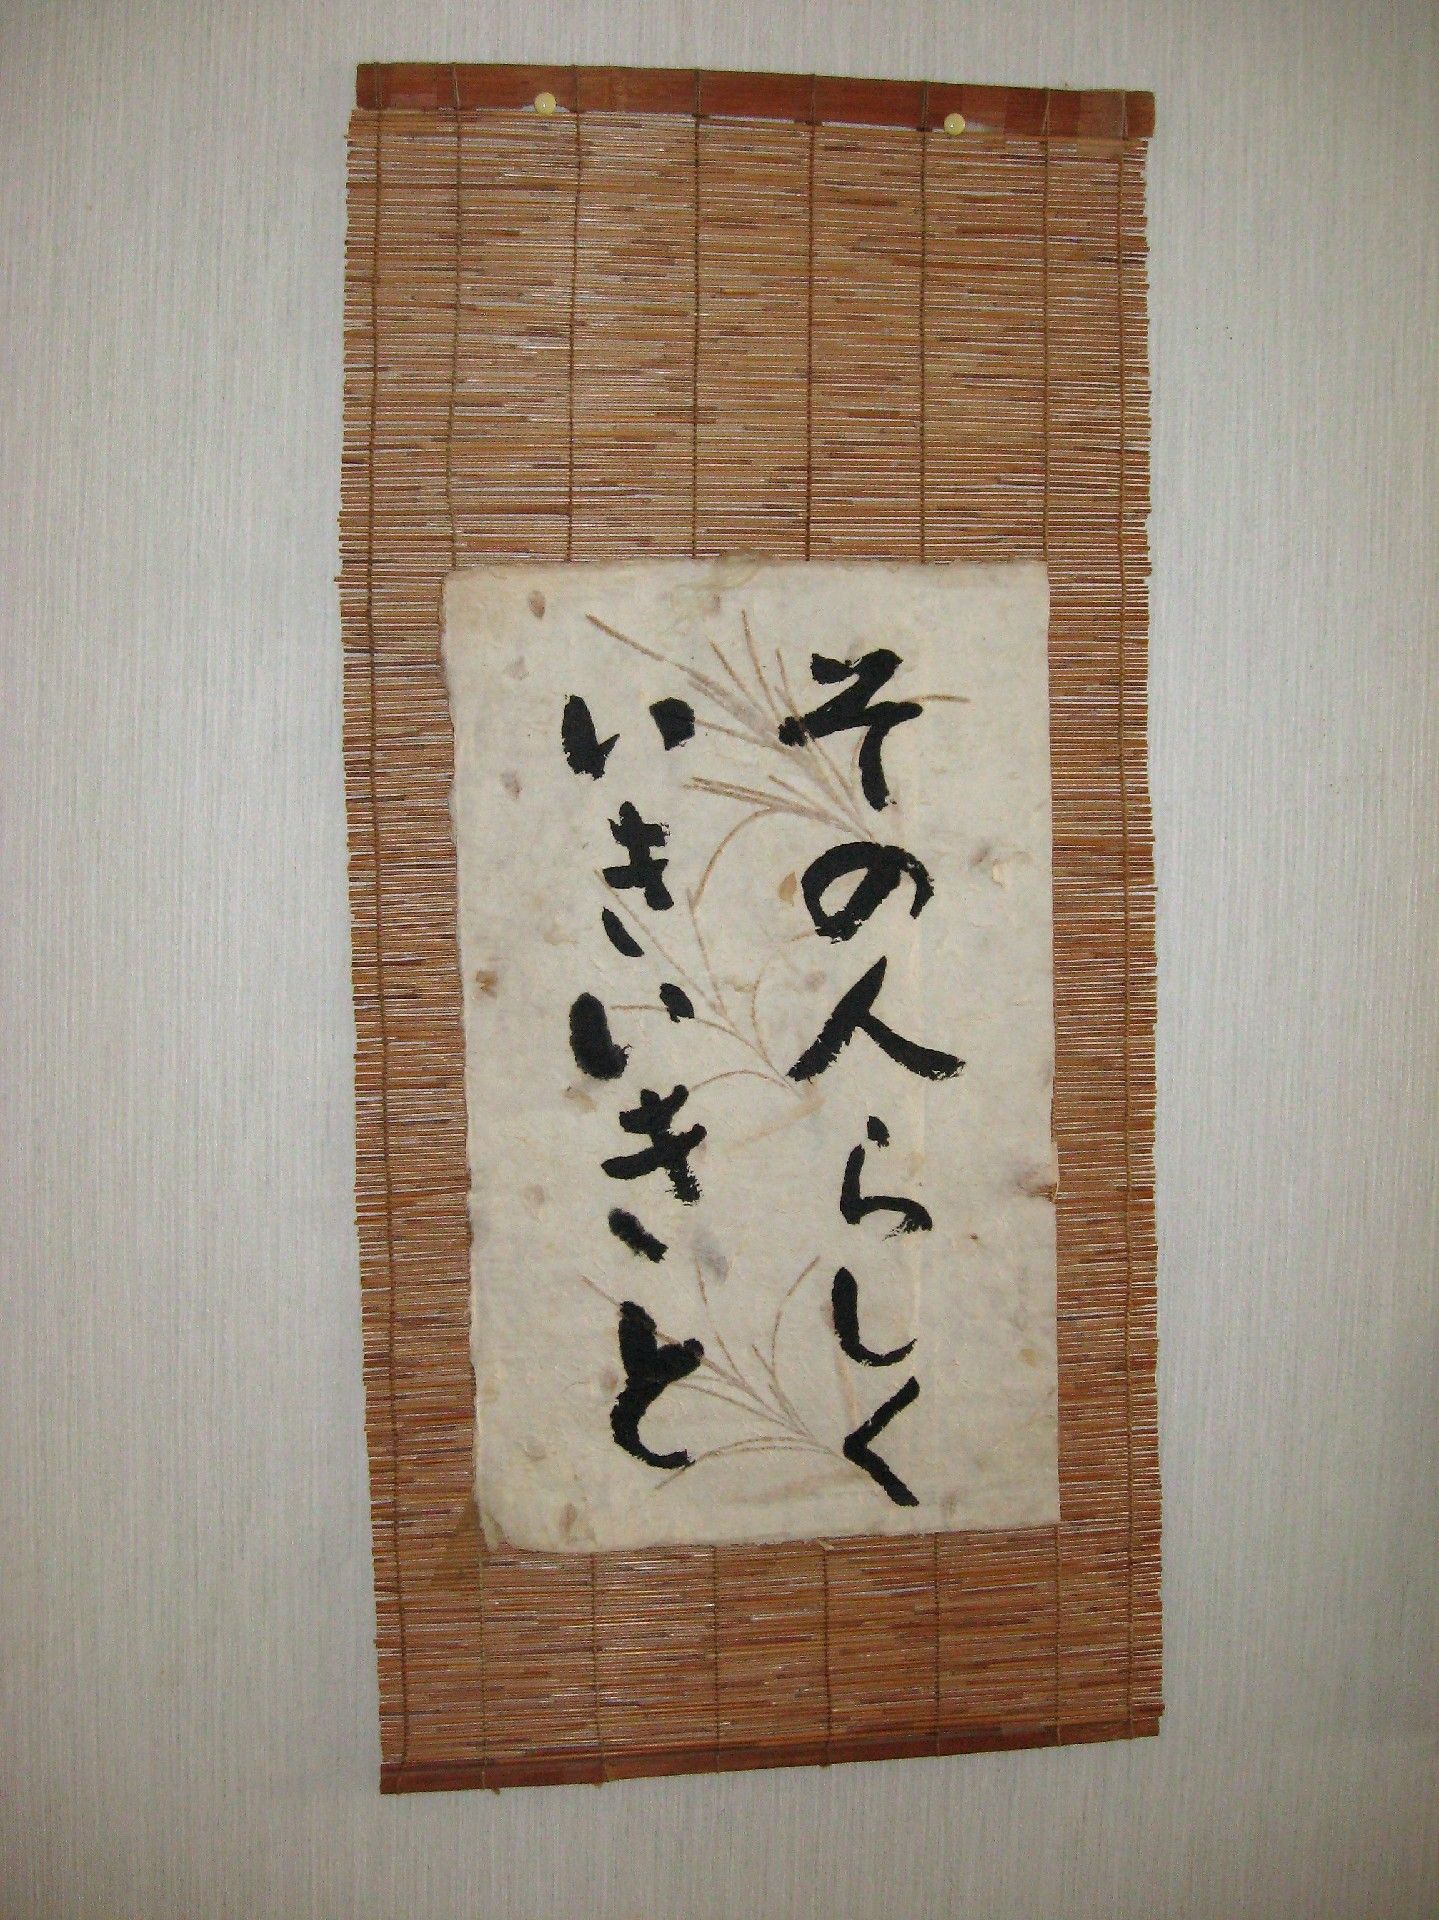 その人らしく
いきいきと